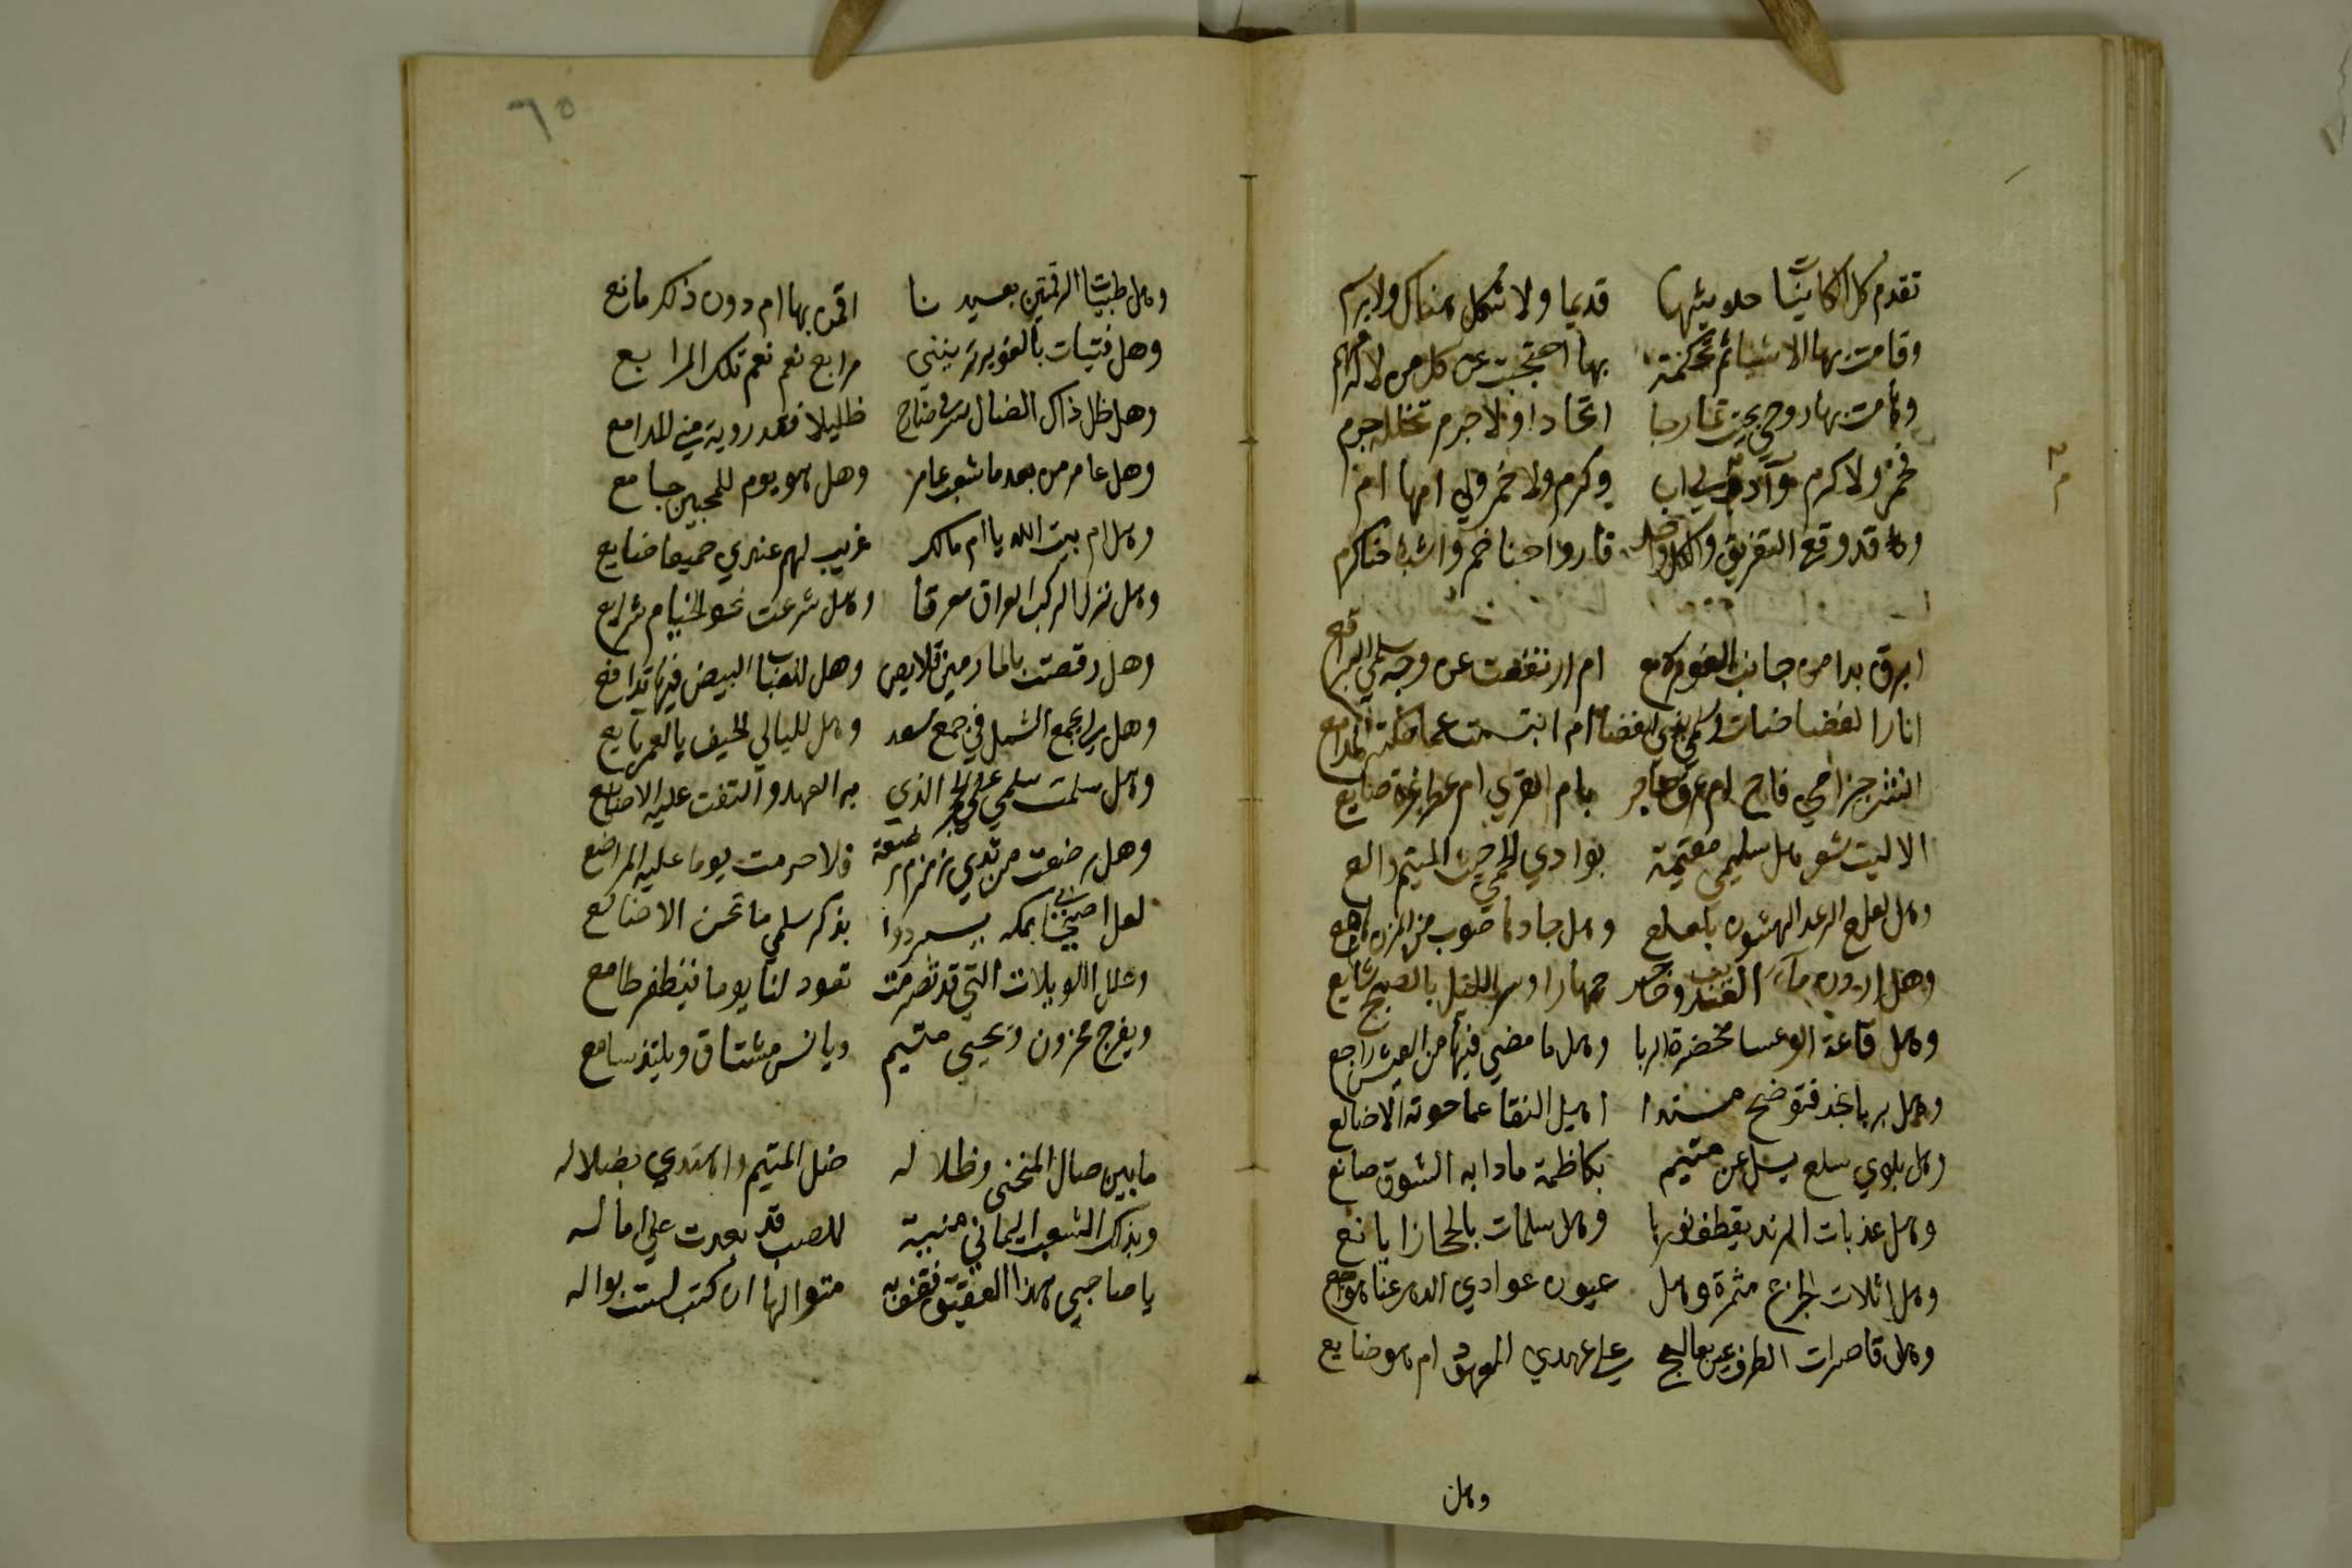 تقدم كل الكاينات حديثها قديما ولا شكل هناك ولا رسم
وقامت بها الاشيا ثم لحكمة بها احتجبت عن كل من لا له فهم
وهامت بها روحي بحيث تمازجا اتحادا ولا جرم تخلله جرم
فخمر ولا كرم وآدم لي اب وكرم ولا خمر ولي امها ام
وقد وقع التفريق والكل واحد فارواحنا خمر واشباحنا كرم
ابرق بدا من جانب الغور لامع ام ارتفعت عن وجه سلمى البراقع
انار الغضا ضات وسلمى بذي الغضا ام ابتسمت عما حكته المدامع
انشر خزامى فاح ام عرف حاجر بام القرى ام عطر عزة ضايع
الا ليت شعري هل سليمى مقيمة بوادي الحمى حيث المتيم والع
وهل لعلع الرعد الهتون بلعلع وهل جادها صوب من المزن هامع
وهل اردن ماء العذيب وحاجر جهارا وسر الليل بالصبح شايع
وهل قاعة الوعسا مخضرة الربا وهل ما مضى فيها من العيش راجع
وهل بربا نجد فتوضح مسندا اهيل النقا عما حوته الاضالع
وهل بلوي سلع يسل عن متيم بكاظمة ماذا به الشوق صانع
وهل عذبات الرند يقطف نورها وهل سلمات بالحجاز ايانع
وهل اثلات الجزع مثمرة وهل عيون عوادي الدهر عنها هواجع
وهل قاصرات الطرف عين بعالج على عهدي المعهود ام هو ضايع
وهل
٦٥
وهل ظبيات الرقمتين بعيدنا اقمن بها ام دون ذلك مانع
وهل فتيات بالغوير يرينني مرابع نعم نعم تلك المرابع
وهل ظل ذاك الضال شرقي ضارج ظليلا فقد روته مني المدامع
وهل عامر من بعدنا شعب عامر وهل هو يوم للمحبين جامع
وهل ام بيت الله يا ام مالك غريب لهم عندي جميعا صنايع
وهل نزل الركب العراق معرفا وهل شرعت نحو الخيام شرايع
وهل رقصت بالمازمين قلايص وهل للقباب البيض فيها تدافع
وهل لي بجمع الشمل في جمع مسعد وهل لليالي الخيف بالعمر بايع
وهل سلمت سلمى على الحجر الذي به العهد والتفت عليه الاصابع
وهل رضعت من ثدي زمزم رضعة فلا حرمت يوما عليه المراضع
لعل اصيحابي بمكة يبردوا بذكر سلمى ما تجن الاضالع
وعل اللويلات التي قد تصرمت تعود لنا يوما فيظفر طامع
ويفرح محزون ويحيى متيم ويانس مشتاق ويلتذ سامع
ما بين ضال المنحنى وظلاله ضل المتيم واهتدى بضلاله
وبذلك الشعب اليماني منية للصب قد بعدت على اماله
يا صاحبي هذا العقيق فقف به متوالها ان كنت لست بواله